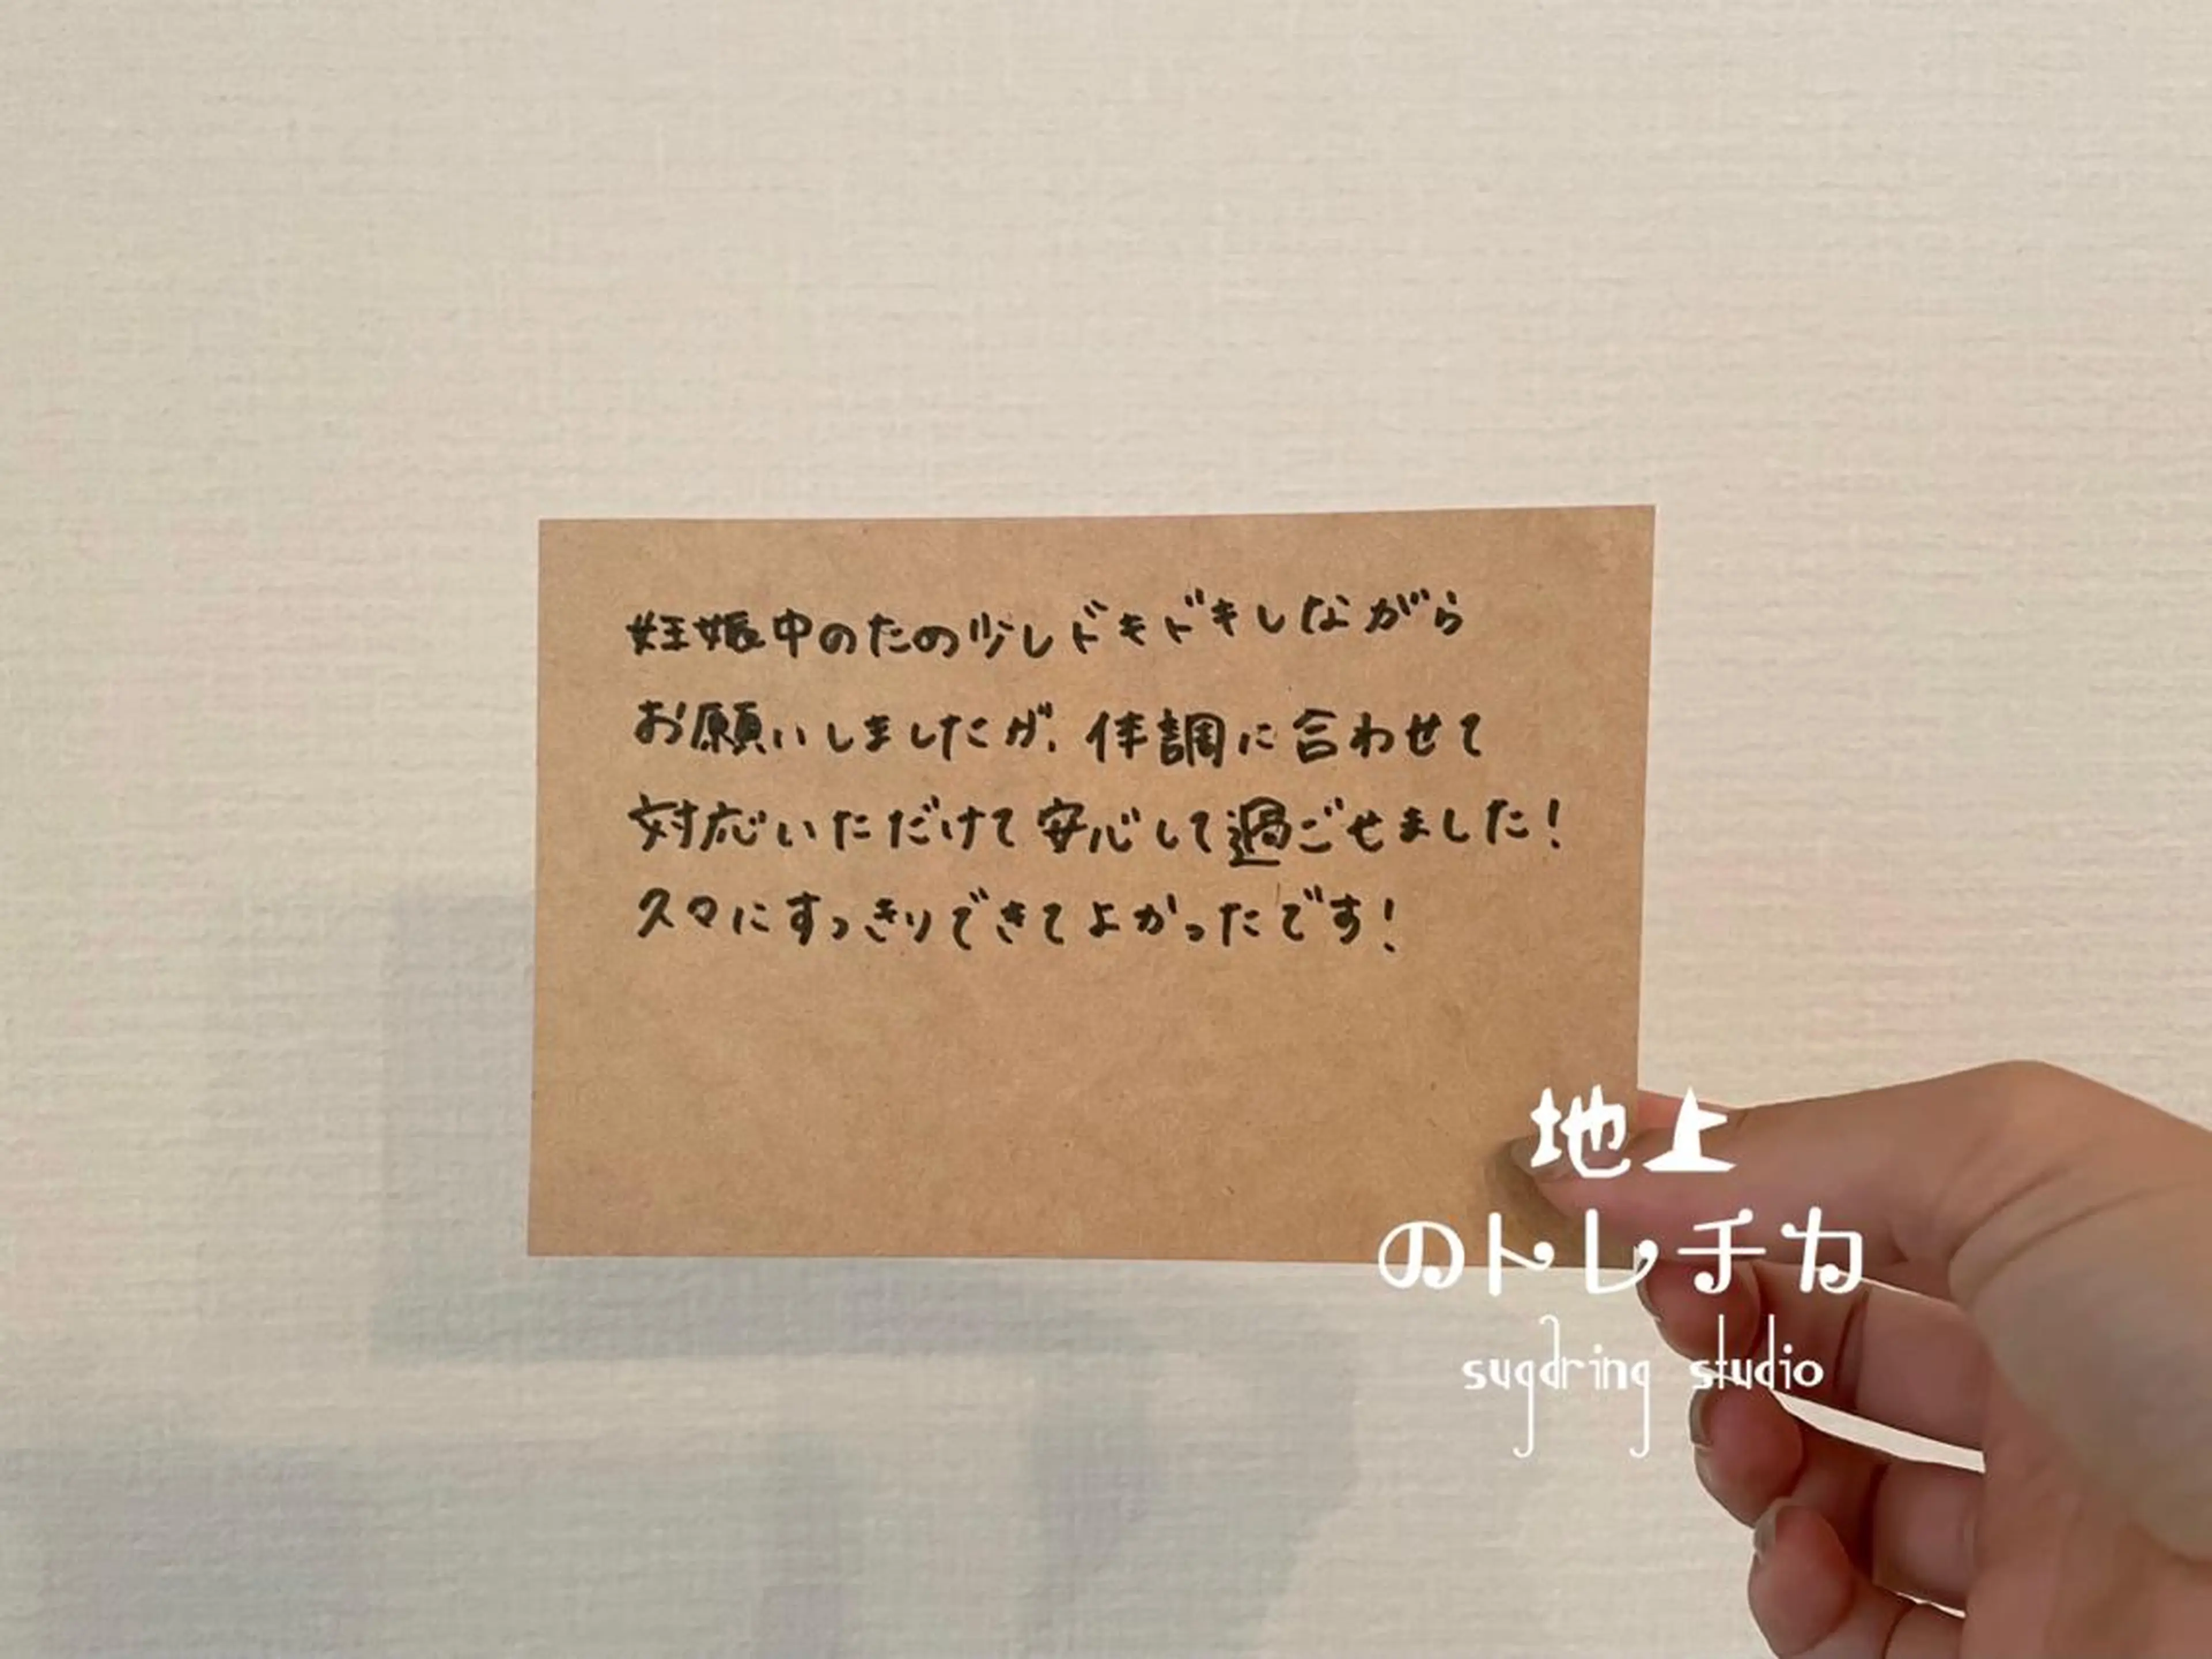 妊娠中のため少しドキドキしながら
お願いしましたが、体調に合わせて
対応いただけて安心して過ごせました!
久々にすっきりできてよかったです!
地上
のトレチカ
sugaring studio